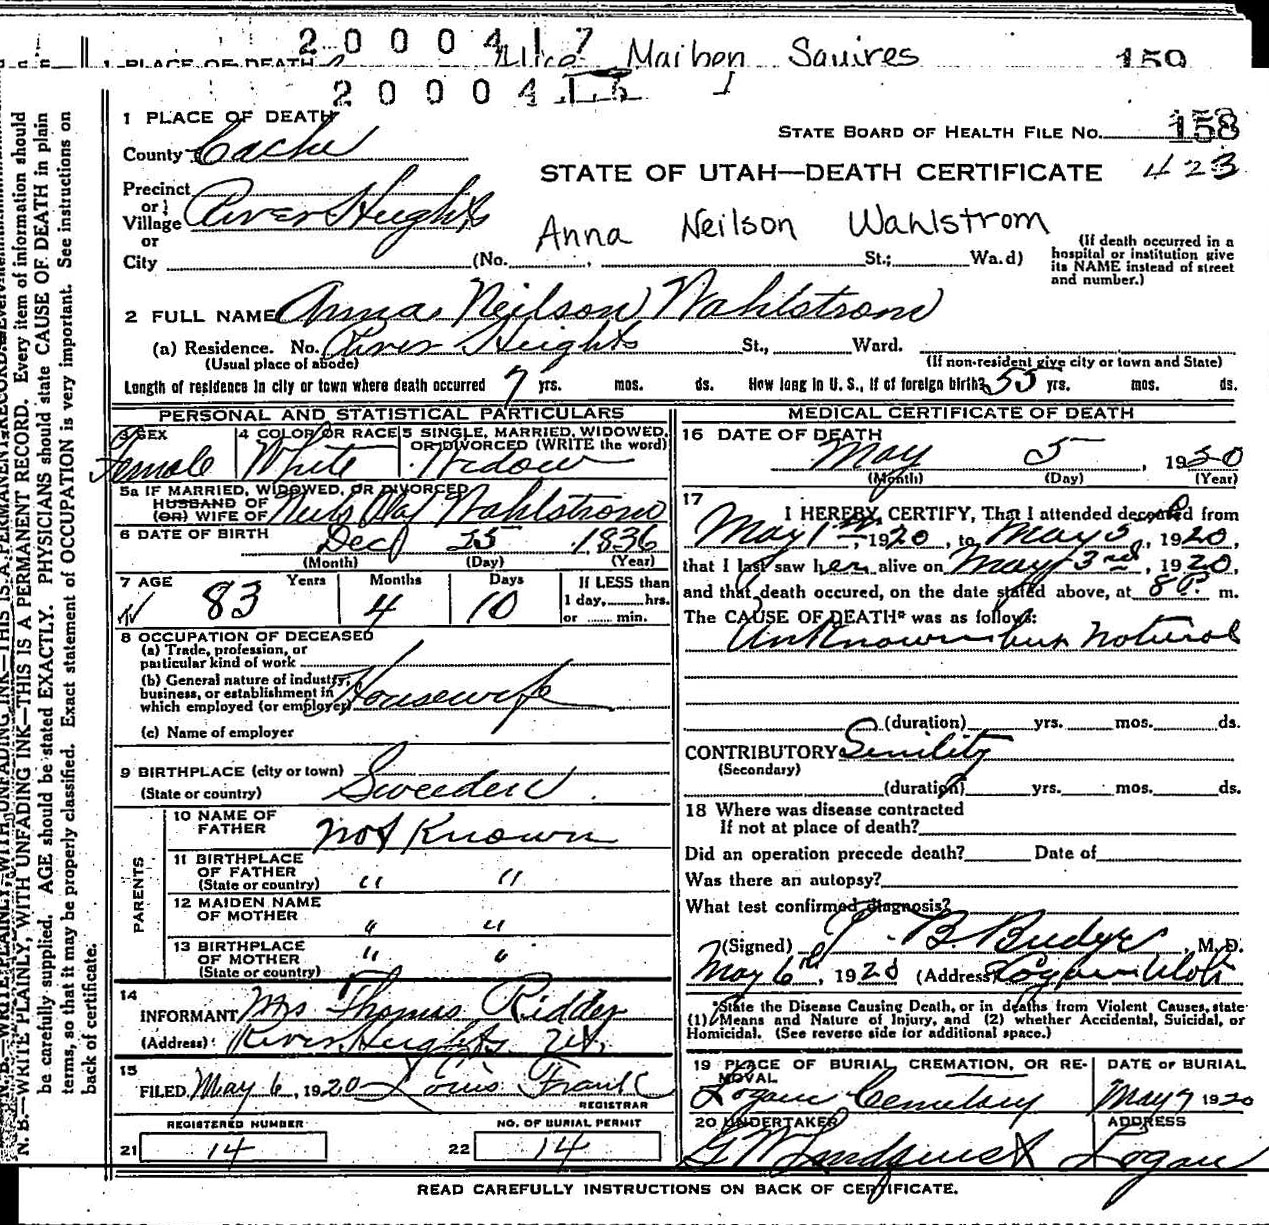 2000417
1 PLACE OF DEATH Maiben Squires 159
2000415
1 PLACE OF DEATH
STATE BOARD OF HEALTH FILE No. 158
County Cache
STATE OF UTAH—DEATH CERTIFICATE 423
Precinct
or
Village River Heights
or
Anna Neilson Wahlstrom
City (No. , St.; Ward)
(If death occurred in a
hospital or institution give
its NAME instead of street
and number.)
2 FULL NAME Anna Neilson Wahlstrom
(a) Residence. No. River Heights St., Ward.
(Usual place of abode) (If non-resident give city or town and State)
Length of residence in city or town where death occurred 7 yrs. mos. ds. How long in U. S., if of foreign birth? 55 yrs. mos. ds.
PERSONAL AND STATISTICAL PARTICULARS
3 SEX
Female
4 COLOR OR RACE
White
5 SINGLE, MARRIED, WIDOWED,
OR DIVORCED (WRITE the word)
Widow
5a IF MARRIED, WIDOWED, OR DIVORCED
HUSBAND OF
(OR) WIFE OF Neils Olaf Wahlstrom
6 DATE OF BIRTH Dec 25 1836
(Month) (Day) (Year)
7 AGE Years Months Days If LESS than
83 4 10 1 day, hrs.
or min.
8 OCCUPATION OF DECEASED
(a) Trade, profession, or
particular kind of work
(b) General nature of industry,
business, or establishment in
which employed (or employer) Housewife
(c) Name of employer
9 BIRTHPLACE (city or town)
(State or country) Sweeden
PARENTS
10 NAME OF
FATHER not Known
11 BIRTHPLACE
OF FATHER
(State or country) " "
12 MAIDEN NAME
OF MOTHER " "
13 BIRTHPLACE
OF MOTHER
(State or country) " "
14
INFORMANT Mrs Thomas Ridder
(Address) River Heights Ut.
15
FILED May 6, 1920 Louis Frank
REGISTRAR
REGISTERED NUMBER
21 14
NO. OF BURIAL PERMIT
22 14
MEDICAL CERTIFICATE OF DEATH
16 DATE OF DEATH
May 5, 1920
(Month) (Day) (Year)
17
I HEREBY CERTIFY, That I attended deceased from
May 1st, 1920, to May 5, 1920,
that I last saw her alive on May 3rd, 1920,
and that death occured, on the date stated above, at 8 P. m.
The CAUSE OF DEATH* was as follows:
Unknown but natural
(duration) yrs. mos. ds.
CONTRIBUTORY Senility
(Secondary)
(duration) yrs. mos. ds.
18 Where was disease contracted
If not at place of death?
Did an operation precede death? Date of
Was there an autopsy?
What test confirmed diagnosis?
(Signed) B. Budge, M. D.
May 6th, 1920 (Address) Logan Utah
*State the Disease Causing Death, or in deaths from Violent Causes, state
(1) Means and Nature of Injury, and (2) whether Accidental, Suicidal, or
Homicidal. (See reverse side for additional space.)
19 PLACE OF BURIAL, CREMATION, OR RE-
MOVAL
Logan Cemetary
DATE OF BURIAL
May 7 1920
20 UNDERTAKER
G W Lindquist
ADDRESS
Logan
READ CAREFULLY INSTRUCTIONS ON BACK OF CERTIFICATE.
N. B.—WRITE PLAINLY, WITH UNFADING INK—THIS IS A PERMANENT RECORD. Every item of information should
be carefully supplied. AGE should be stated EXACTLY. PHYSICIANS should state CAUSE OF DEATH in plain
terms, so that it may be properly classified. Exact statement of OCCUPATION is very important. See instructions on
back of certificate.